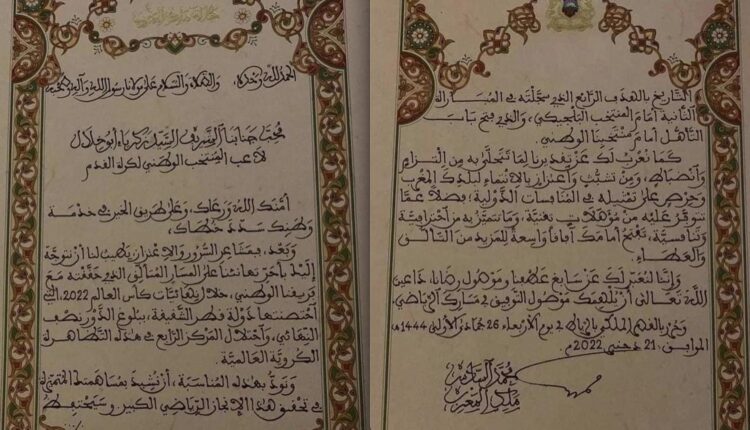 الحمد لله وحده، والصلاة والسلام على مولانا رسول الله وآله وصحبه
محب جنابنا الشريف السيد زكرياء أبو خلال
لاعب المنتخب الوطني لكرة القدم
أمنك الله ورعاك، وعلى طريق الخير في خدمة
وطنك سدد خطاك،
وبعد، بمشاعر السرور والاعتزاز يطيب لنا أن نتوجه
إليك بأحر تهانئنا على المسار المتألق الذي حققته مع
فريقنا الوطني، خلال نهائيات كأس العالم 2022، التي
احتضنتها دولة قطر الشقيقة، ببلوغ الدور نصف
النهائي، واحتلال المركز الرابع في هذه التظاهرة
الكروية العالمية.
ونود بهذه المناسبة، أن نشيد بمساهمتك المتميزة
في تحقيق هذا الإنجاز الرياضي الكبير وسيحتفظ
.../...
التاريخ بالهدف الرائع الذي سجلته في المباراة
الثانية أمام المنتخب البلجيكي، والذي فتح باب
التأهل أمام منتخبنا الوطني.
كما نعرب لك عن تقديرنا لما تتحلو به من التزام
وانضباط، ومن تشبث واعتزاز بالانتماء لبلدك المغرب
وحرص على تمثيله في المنافسات الدولية، فضلا عما
تتوفر عليه من مؤهلات تقنية، وما تتميز به من احترافية
وتنافسية، تفتح أمامك آفاقا واسعة للمزيد من التألق
والعطاء.
وإننا لنعبر لك عن سابغ عطفنا وموصول رضانا، داعين
الله تعالى أن يلهمك موصول التوفيق في مسارك الرياضي.
وحرر بالقصر الملكي بالرباط في يوم الأربعاء 26 جمادى الأولى 1444هـ
الموافق لـ 21 دجنبر 2022م.
محمد السادس
ملك المغرب